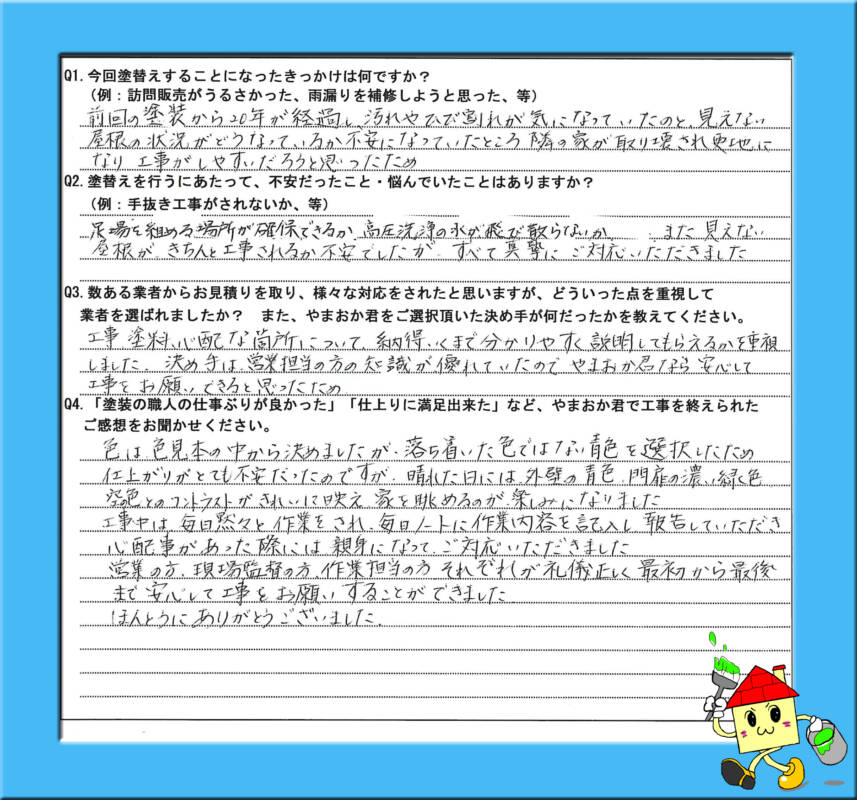 Q1. 今回塗替えすることになったきっかけは何ですか？
（例：訪問販売がうるさかった、雨漏りを補修しようと思った、等）
前回の塗装から20年が経過し、汚れやひび割れが気になっていたのと、見えない
屋根の状況がどうなっているか不安になっていたところ 隣の家が取り壊され更地に
なり 工事がしやすいだろうと思ったため
Q2. 塗替えを行うにあたって、不安だったこと・悩んでいたことはありますか？
（例：手抜き工事がされないか、等）
足場を組める場所が確保できるか、高圧洗浄の水が飛び散らないか、また 見えない
屋根が、きちんと工事されるか不安でしたが、すべて真摯に ご対応いただきました
Q3. 数ある業者からお見積りを取り、様々な対応をされたと思いますが、どういった点を重視して
業者を選ばれましたか？　また、やまおか君をご選択頂いた決め手が何だったかを教えてください。
工事、塗料、心配な箇所について、納得いくまで分かりやすく説明してもらえるかを重視
しました. 決め手は、営業担当の方の知識が優れていたので やまおか君なら安心して
工事をお願いできると思ったため
Q4. 「塗装の職人の仕事ぶりが良かった」「仕上りに満足出来た」など、やまおか君で工事を終えられた
ご感想をお聞かせください。
色は色見本の中から決めましたが、落ち着いた色ではない青色を選択したため
仕上がりがとても不安だったのですが、晴れた日には、外壁の青色、門扉の濃い緑色、
空の色とのコントラストがきれいに映え 家を眺めるのが楽しみになりました
工事中は、毎日黙々と作業をされ、毎日ノートに作業内容を記入し 報告していただき
心配事があった際には親身になって、ご対応いただきました
営業の方、現場監督の方、作業担当の方 それぞれが礼儀正しく 最初から最後
まで安心して工事をお願いすることができました
ほんとうにありがとうございました.